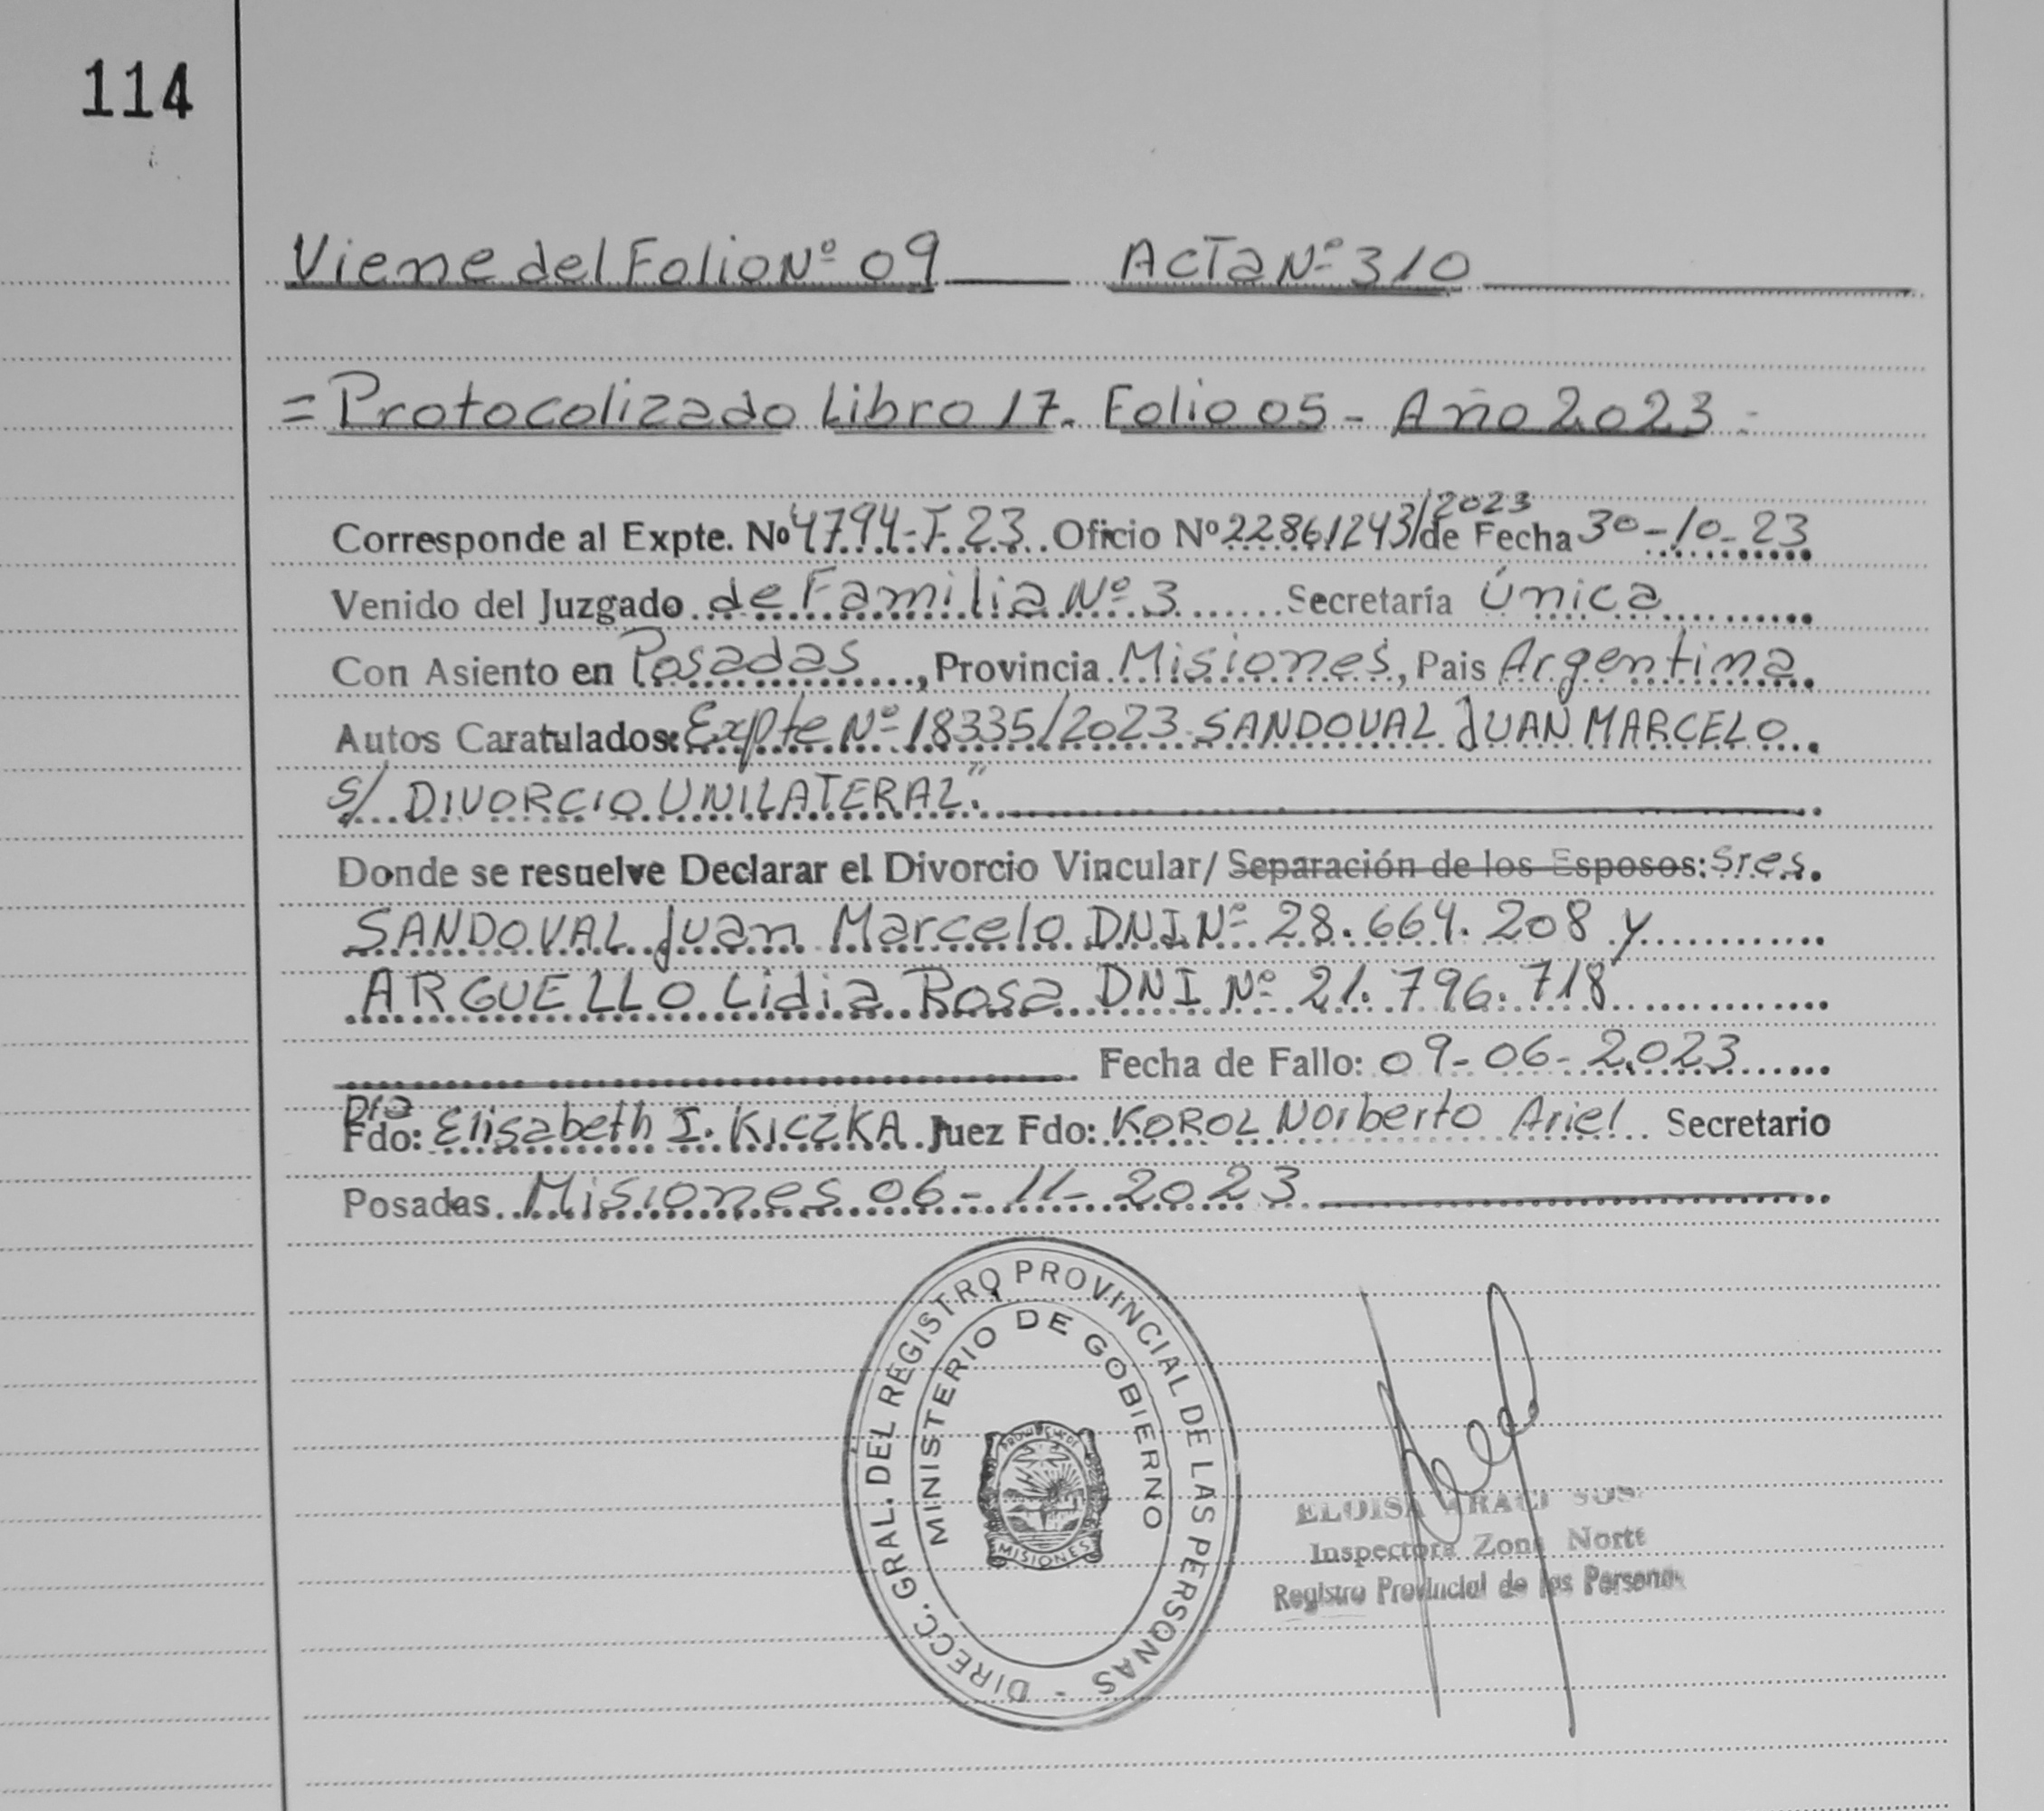 114
Viene del Folio Nº 09 ACTa Nº 310
= Protocolizado Libro 17. Folio 05 - Año 2023 -
Corresponde al Expte. Nº 4794-I-23 Oficio Nº 22861243/2023 de Fecha 30-10-23
Venido del Juzgado de Familia Nº 3 Secretaría Única
Con Asiento en Posadas, Provincia Misiones, Pais Argentina.
Autos Caratulados: Expte Nº 18335/2023 SANDOVAL JUAN MARCELO
s/ DIVORCIO UNILATERAL"
Donde se resuelve Declarar el Divorcio Vincular/ Separación de los Esposos: Sres.
SANDOVAL Juan Marcelo DNI Nº 28.664.208 y
ARGUELLO Lidia Rosa DNI Nº 21.796.718
Fecha de Fallo: 09-06-2023
Dra
Fdo: Elisabeth I. KICZKA Juez Fdo: KOROL Norberto Ariel Secretario
Posadas Misiones 06-11-2023
DIRECC. GRAL. DEL REGISTRO PROVINCIAL DE LAS PERSONAS -
MINISTERIO DE GOBIERNO
PROVINCIA DE
MISIONES
ELOISA
Inspectora Zona Norte
Registro Provincial de las Personas